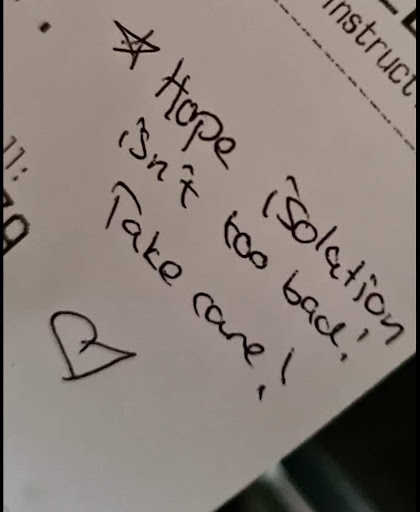 Instruct
Hope isolation
isn't too bad!
Take care!
11: